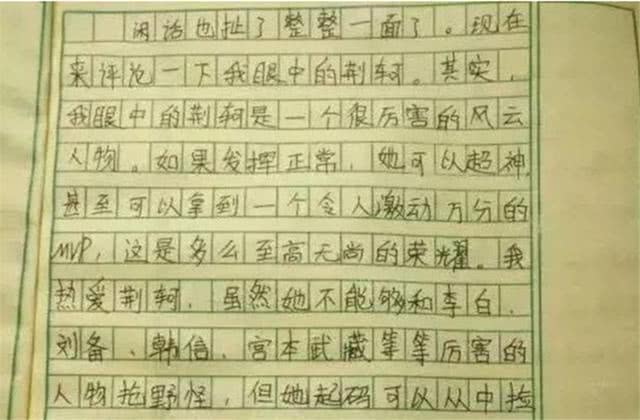 闲话也扯了整整一面了。现在
来评论一下我眼中的荆轲。其实，
我眼中的荆轲是一个很厉害的风云
人物。如果发挥正常，她可以超神，
甚至可以拿到一个令人激动万分的
MVP，这是多么至高无尚的荣耀。我
热爱荆轲，虽然她不能够和李白、
刘备、韩信、宫本武藏等等厉害的
人物抢野怪，但她起码可以从中捡